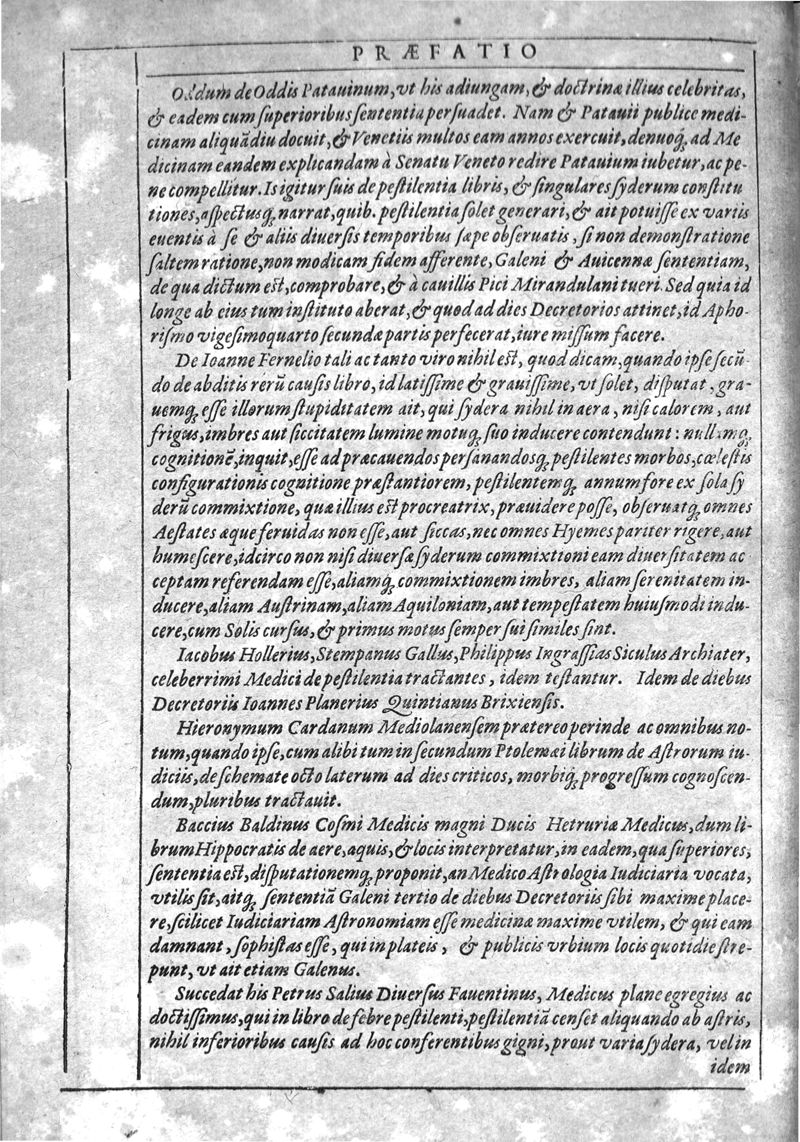 PRÆFATIO
Oddum de Oddis Patauinum, vt his adiungam, & doctrinæ illius celebritas,
& eadem cum superioribus sententia persuadet. Nam & Patauii publice medi-
cinam aliquādiu docuit, & Venetiis multos eam annos exercuit, denuoq; ad Me
dicinam eandem explicandam à Senatu Veneto redire Patauium iubetur, ac pe-
ne compellitur. Is igitur suis de pestilentia libris, & singulares syderum constitu
tiones, aspectusq; narrat, quib. pestilentia solet generari, & ait potuisse ex variis
euentis à se & aliis diuersis temporibus sæpe obseruatis, si non demonstratione
saltem ratione, non modicam fidem afferente, Galeni & Auicennæ sententiam,
de qua dictum est, comprobare, & à cauillis Pici Mirandulani tueri. Sed quia id
longe ab eius tum instituto aberat, & quod ad dies Decretorios attinet, id Apho-
rismo vigesimoquarto secundæ partis perfecerat, iure missum facere.
De Ioanne Fernelio tali ac tanto viro nihil est, quod dicam, quando ipse secū-
do de abditis rerū causis libro, id latissime & grauissime, vt solet, disputat, gra-
uemq; esse illorum stupiditatem ait, qui sydera nihil in aera, nisi calorem, aut
frigus, imbres aut siccitatem lumine motuq; suo inducere contendunt: nullamq;
cognitionē, inquit, esse ad præcauendos persanandosq; pestilentes morbos, cœlestis
configurationis cognitione præstantiorem, pestilentemq; annum fore ex sola sy
derū commixtione, quæ illius est procreatrix, præuidere posse, obseruatq; omnes
Aestates æque feruidas non esse, aut siccas, nec omnes Hyemes pariter rigere, aut
humescere, idcirco non nisi diuersæ syderum commixtioni eam diuersitatem ac
ceptam referendam esse, aliamq; commixtionem imbres, aliam serenitatem in-
ducere, aliam Austrinam, aliam Aquiloniam, aut tempestatem huiusmodi indu-
cere, cum Solis cursus, & primus motus semper sui similes sint.
Iacobus Hollerius, Stempanus Gallus, Philippus Ingrassias Siculus Archiater,
celeberrimi Medici de pestilentia tractantes, idem testantur. Idem de diebus
Decretoriis Ioannes Planerius Quintianus Brixiensis.
Hieronymum Cardanum Mediolanensem prætereo perinde ac omnibus no-
tum, quando ipse, cum alibi tum in secundum Ptolemæi librum de Astrorum iu-
diciis, de schemate octo laterum ad dies criticos, morbiq; progressum cognoscen-
dum, pluribus tractauit.
Baccius Baldinus Cosmi Medicis magni Ducis Hetruriæ Medicus, dum li-
brum Hippocratis de aere, aquis, & locis interpretatur, in eadem, qua superiores,
sententia est, disputationemq; proponit, an Medico Astrologia Iudiciaria vocata,
vtilis sit, aitq; sententiā Galeni tertio de diebus Decretoriis sibi maxime place-
re, scilicet Iudiciariam Astronomiam esse medicinæ maxime vtilem, & qui eam
damnant, sophistas esse, qui in plateis, & publicis vrbium locis quotidie stre-
punt, vt ait etiam Galenus.
Succedat his Petrus Salius Diuersus Fauentinus, Medicus plane egregius ac
doctissimus, qui in libro de febre pestilenti, pestilentiā censet aliquando ab astris,
nihil inferioribus causis ad hoc conferentibus gigni, prout varia sydera, vel in
idem